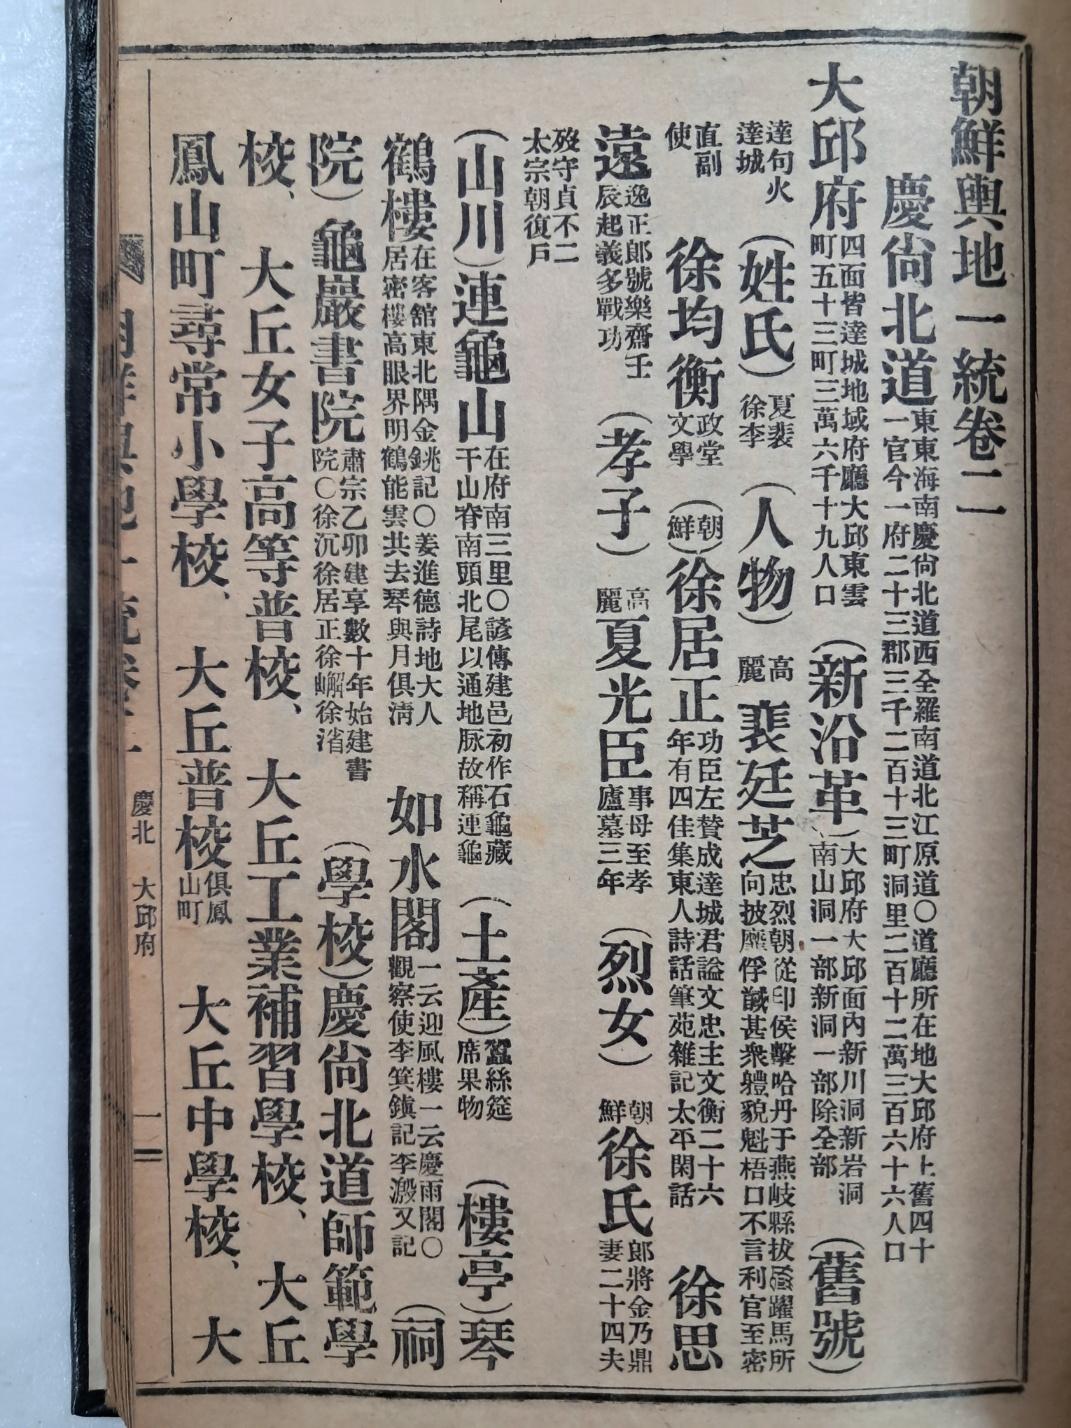 朝鮮輿地一統卷二
慶尙北道東東海南慶尙北道西全羅南道北江原道〇道廳所在地大邱府上舊四十一官今一府二十三郡三千二百十三町洞里二百十二萬三百六十六人口
大邱府四面皆達城地域府廳大邱東雲町五十三町三萬六千十九人口 (新沿革)大邱府大邱面內新川洞新岩洞南山洞一部新洞一部除全部 (舊號)
達句火達城 (姓氏)夏裴徐李 (人物)高麗裴廷芝忠烈朝從印侯擊哈丹于燕岐縣拔劍躍馬所向披靡俘馘甚衆軆貌魁梧口不言利官至密
直副使 徐均衡政堂文學 (朝鮮)徐居正功臣左賛成達城君謚文忠主文衡二十六年有四佳集東人詩話筆苑雜記太平閑話 徐思
遠逸正郞號樂齋壬辰起義多戰功 (孝子)高麗夏光臣事母至孝廬墓三年 (烈女)朝鮮徐氏郞將金乃鼎妻二十四夫
歿守貞不二太宗朝復戶
(山川)連龜山在府南三里〇諺傳建邑初作石龜藏于山脊南頭北尾以通地脉故稱連龜 (土產)蠶絲筵席果物 (樓亭)琴
鶴樓在客舘東北隅金銚記〇姜進德詩地大人居密樓高眼界明鶴能雲共去琴與月俱淸 如水閣一云迎風樓一云慶雨閣〇觀察使李箕鎭記李瀲又記 (祠
院)龜巖書院肅宗乙卯建享數十年始建書院〇徐沉徐居正徐嶰徐渻 (學校)慶尙北道師範學
校、 大丘女子高等普校、 大丘工業補習學校、 大丘
鳳山町尋常小學校、 大丘普校俱鳳山町 大丘中學校、 大
朝鮮輿地一統卷二 慶北 大邱府 一